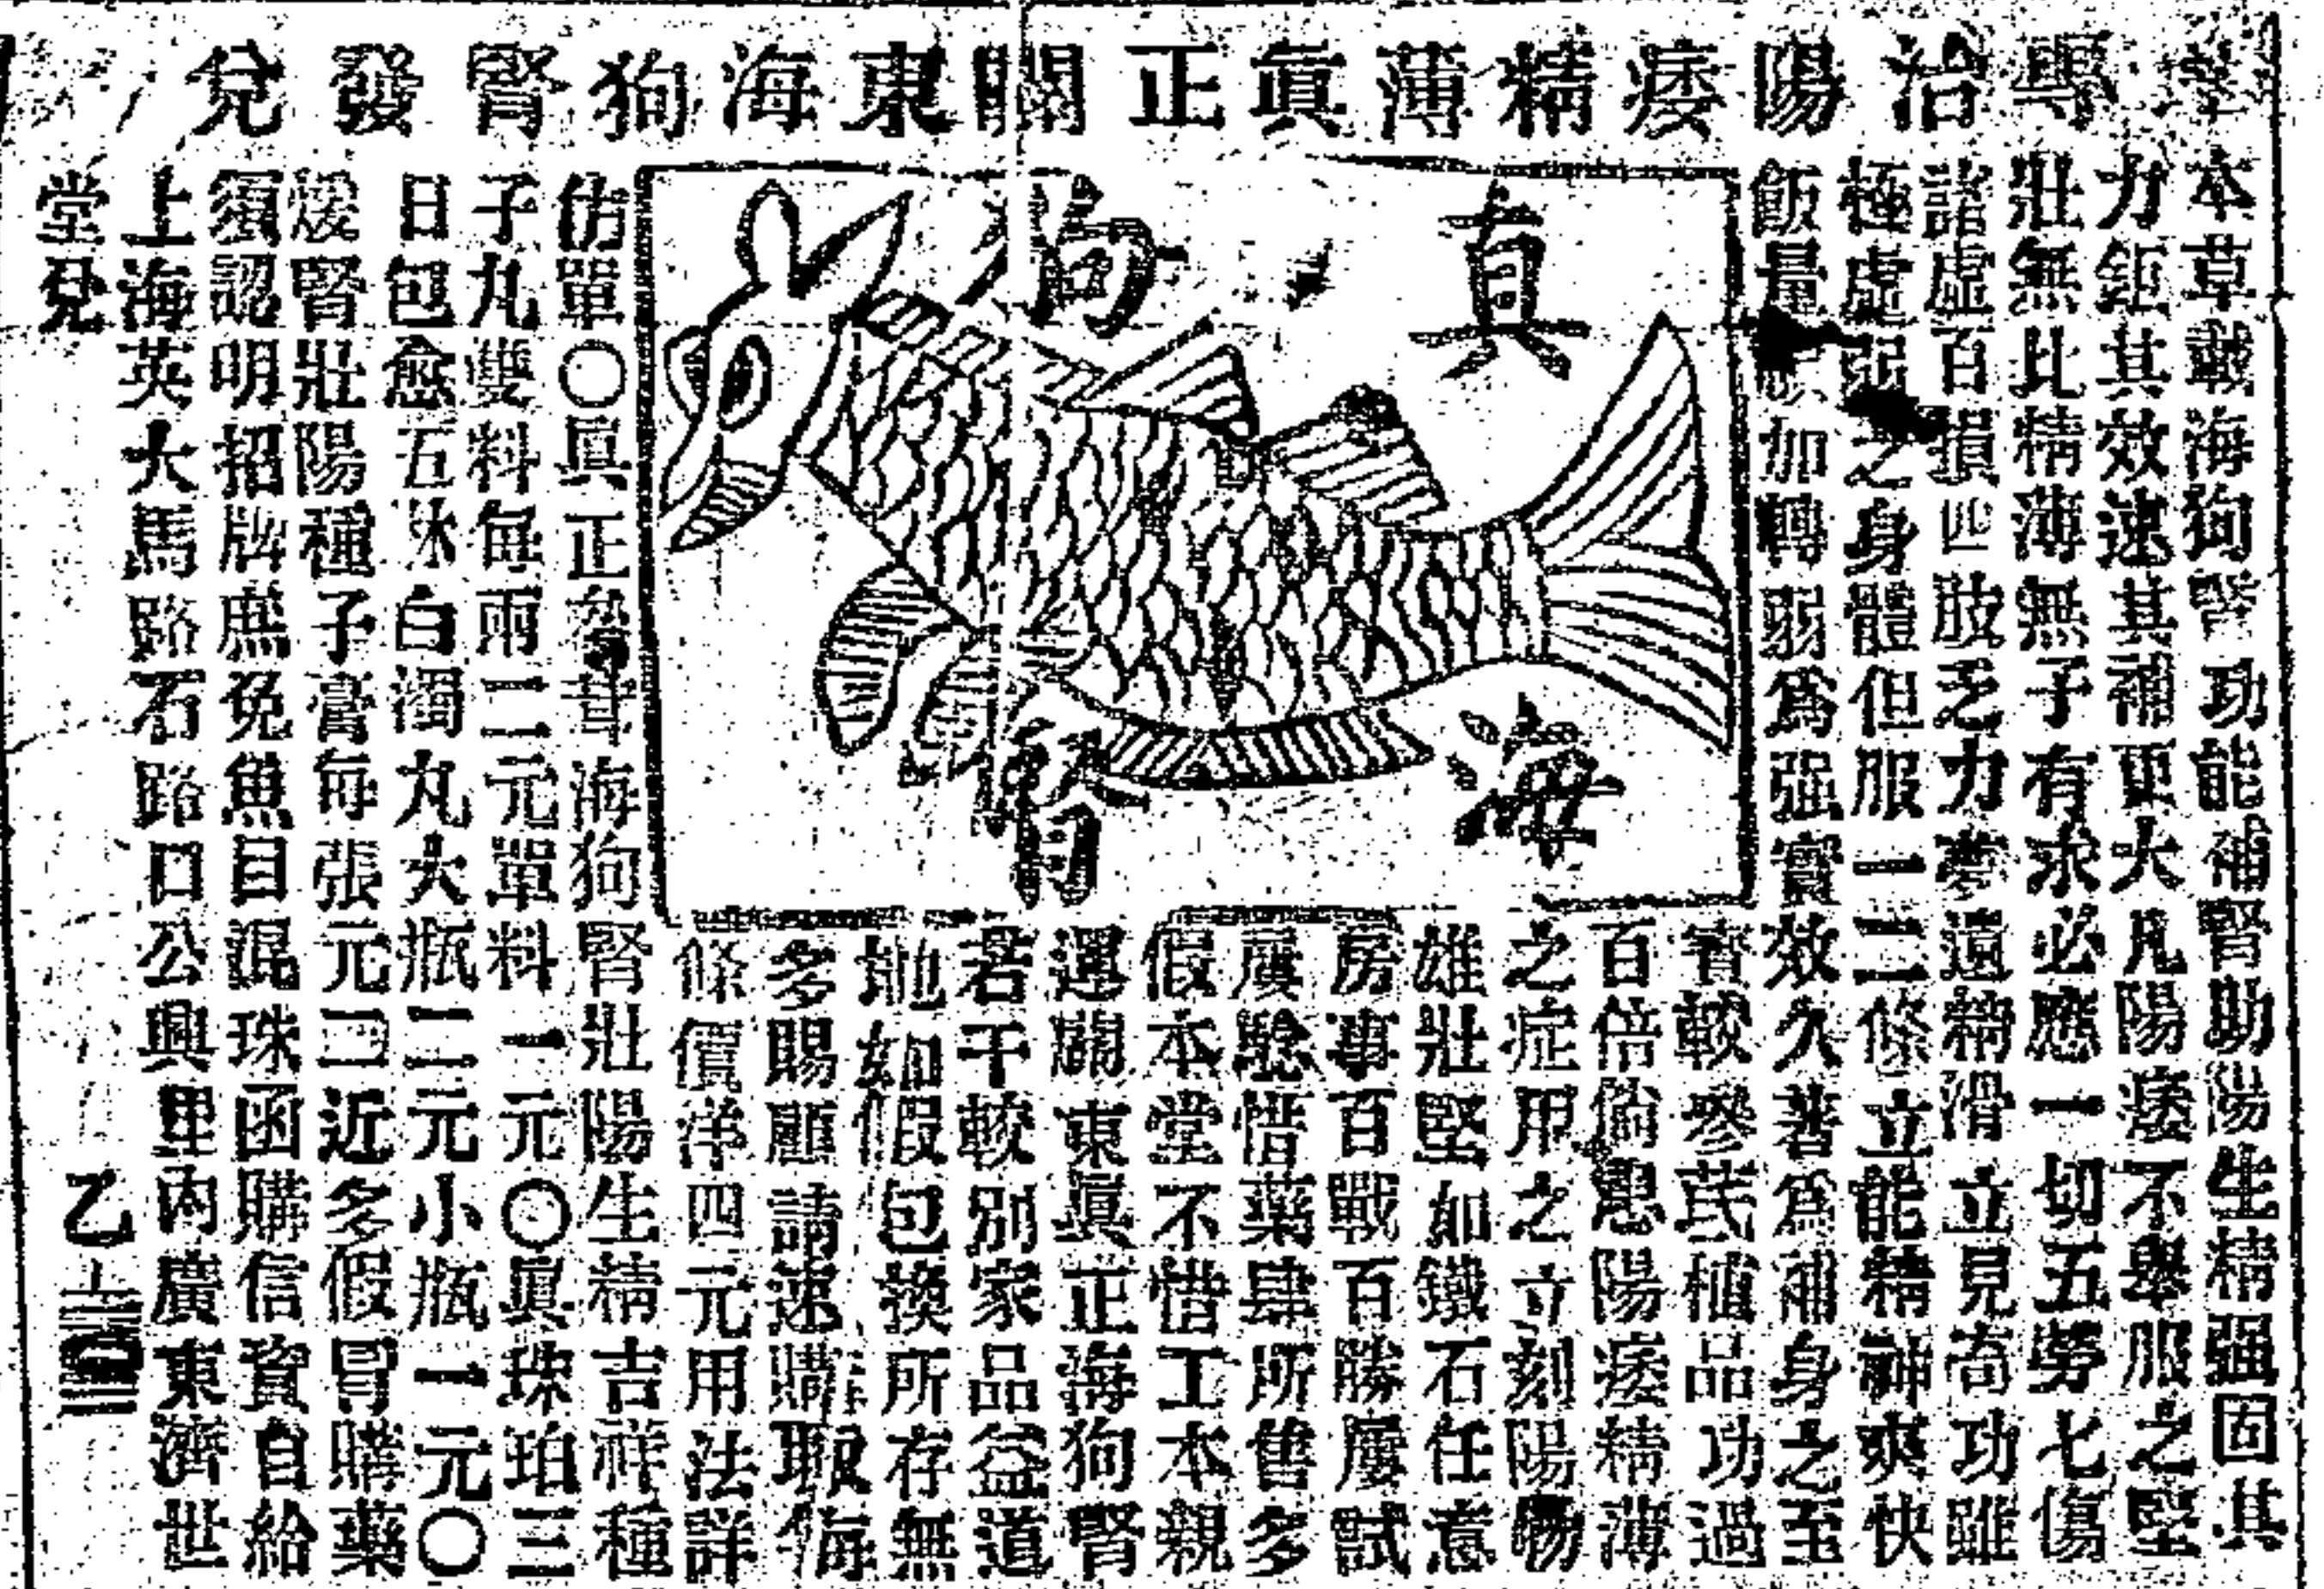 專治陽痿精薄眞正關東海狗腎發兌
本草載海狗腎功能補腎助陽生精强固其
力鉅其效速其補更大凡陽痿不舉服之堅
壯無比精薄無子有求必應一切五勞七傷
諸虛百損四肢乏力夢遺精滑立見奇功雖
極虛弱之身體但服一二條立能精神爽快
飯量加轉弱爲强實效久著爲補身之至
寳較參茋植品功過
百倍倘患陽痿精薄
之症用之立刻陽物
雄壯堅如鐵石任意
房事百戰百勝屢試
屢驗惜藥肆所售多
假本堂不惜工本親
運關東眞正海狗腎
若干較別家品益道
地如假包換所存無
多賜顧請速購取每
條價洋四元用法詳
真海狗腎
仿單〇眞正參茸海狗腎壯陽生精吉祥種
子丸雙料每兩二元單料一元〇眞珠珀三
日包愈五淋白濁丸大瓶二元小瓶一元〇
煖腎壯陽種子膏每張元二近多假冒購藥
須認明招牌庶免魚目混珠函購信資自給
上海英大馬路石路口公興里內廣東濟世
堂兌
乙